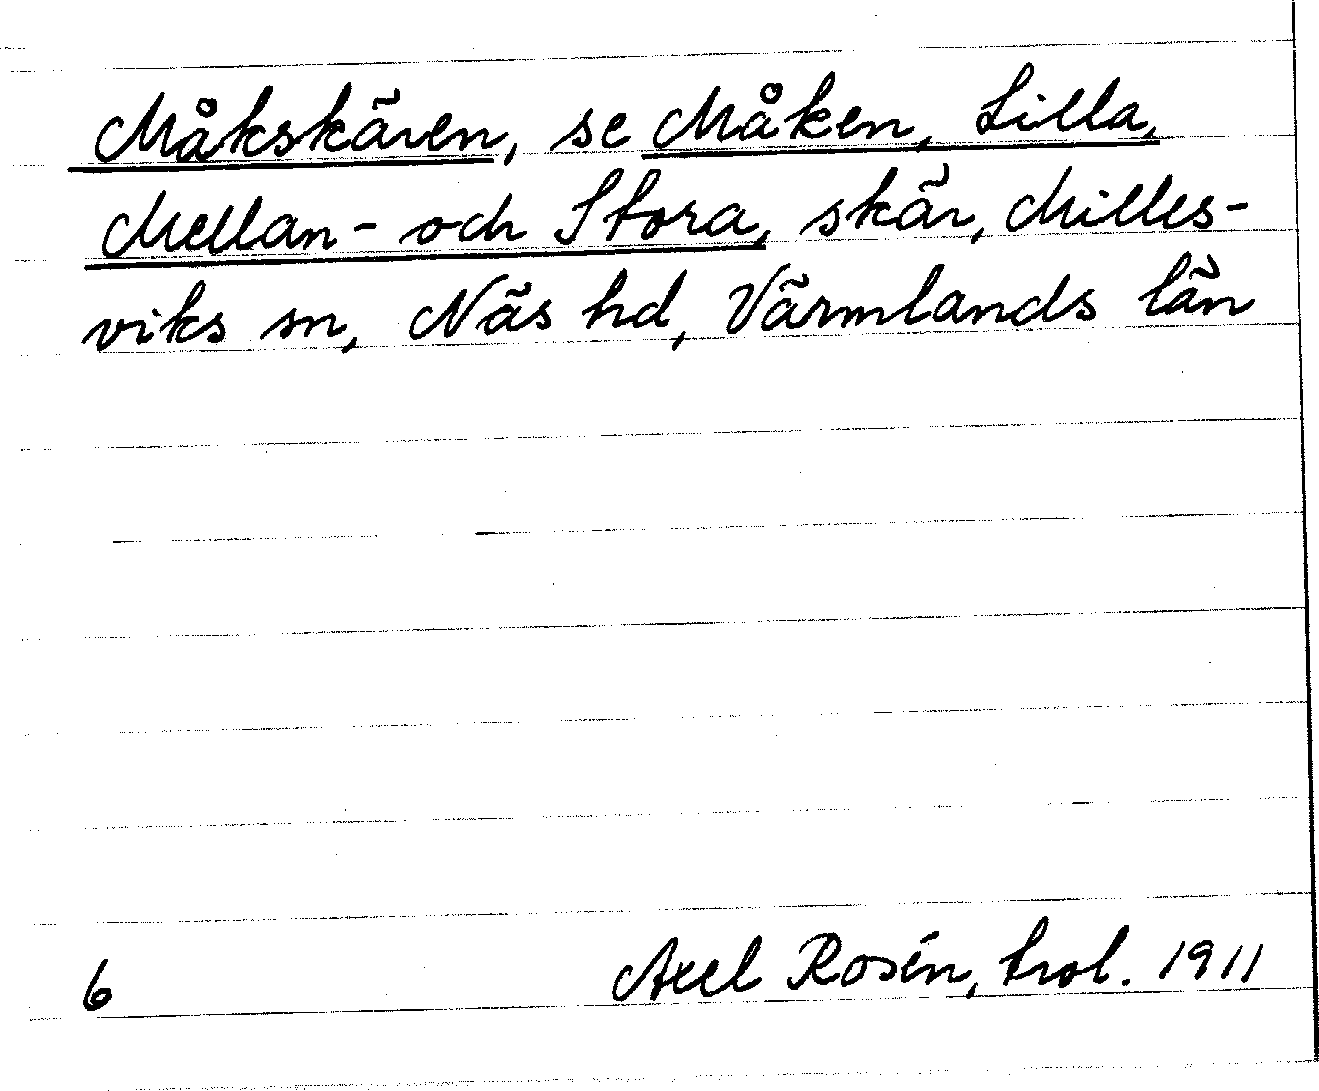 Måkskären, se Måken, Lilla,
Mellan- och Stora, skär, Milles-
viks sn, Näs hd, Värmlands län
6 Axel Rosén, trol. 1911